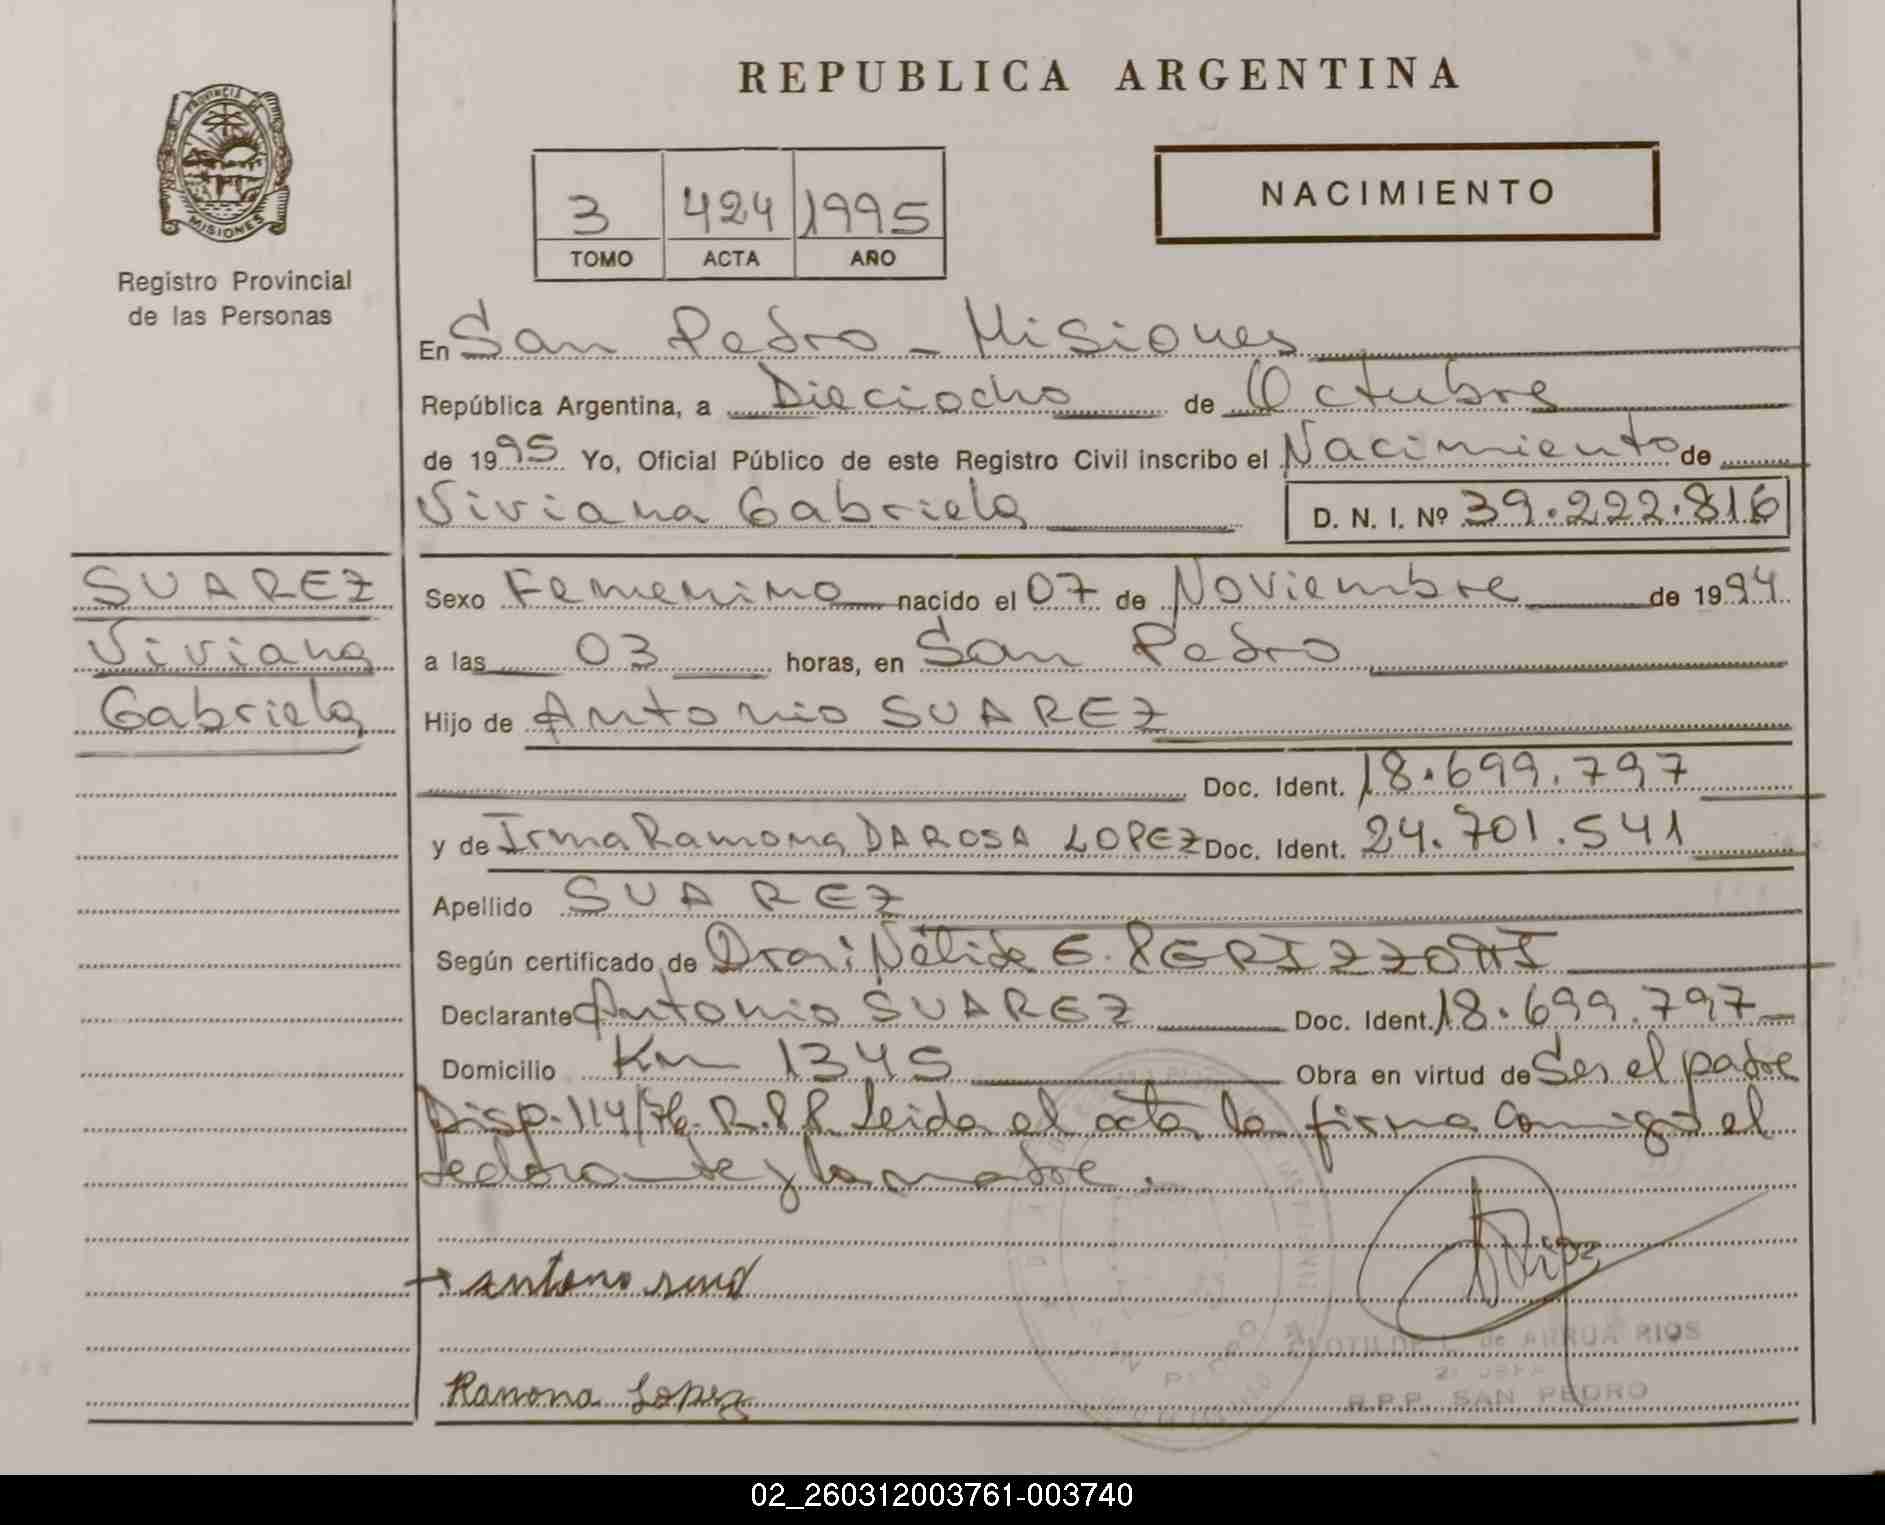 REPUBLICA ARGENTINA
PROVINCIA DE
MISIONES
Registro Provincial
de las Personas
3 424 1995
TOMO ACTA AÑO
NACIMIENTO
En San Pedro - Misiones
República Argentina, a Dieciocho de Octubre
de 1995 Yo, Oficial Público de este Registro Civil inscribo el Nacimiento de
Viviana Gabriela D. N. I. Nº 39.222.816
SUAREZ
Viviana
Gabriela
Sexo Femenino nacido el 07 de Noviembre de 1994
a las 03 horas, en San Pedro
Hijo de Antonio SUAREZ
Doc. Ident. 18.699.797
y de Irma Ramona DAROSA LOPEZ Doc. Ident. 24.701.541
Apellido SUAREZ
Según certificado de Dra: Nélida E.
Declarante Antonio SUAREZ Doc. Ident. 18.699.797
Domicilio Km 1345 Obra en virtud de Ser el padre
Disp. 114/76 R.P.P. Leida el acta la firma Conmigo el
declarante y la madre.
Ramona Lopez
CLOTILDE L. de ARRUA RIOS
R.P.P. SAN PEDRO
02_260312003761-003740